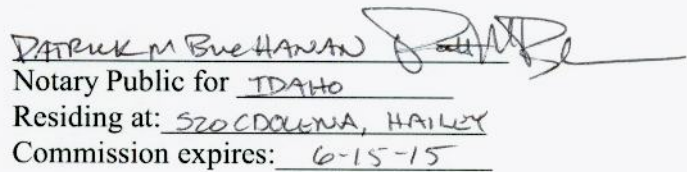 PATRICK M BUCHANAN
Notary Public for IDAHO
Residing at: HAILEY
Commission expires: 6-15-15